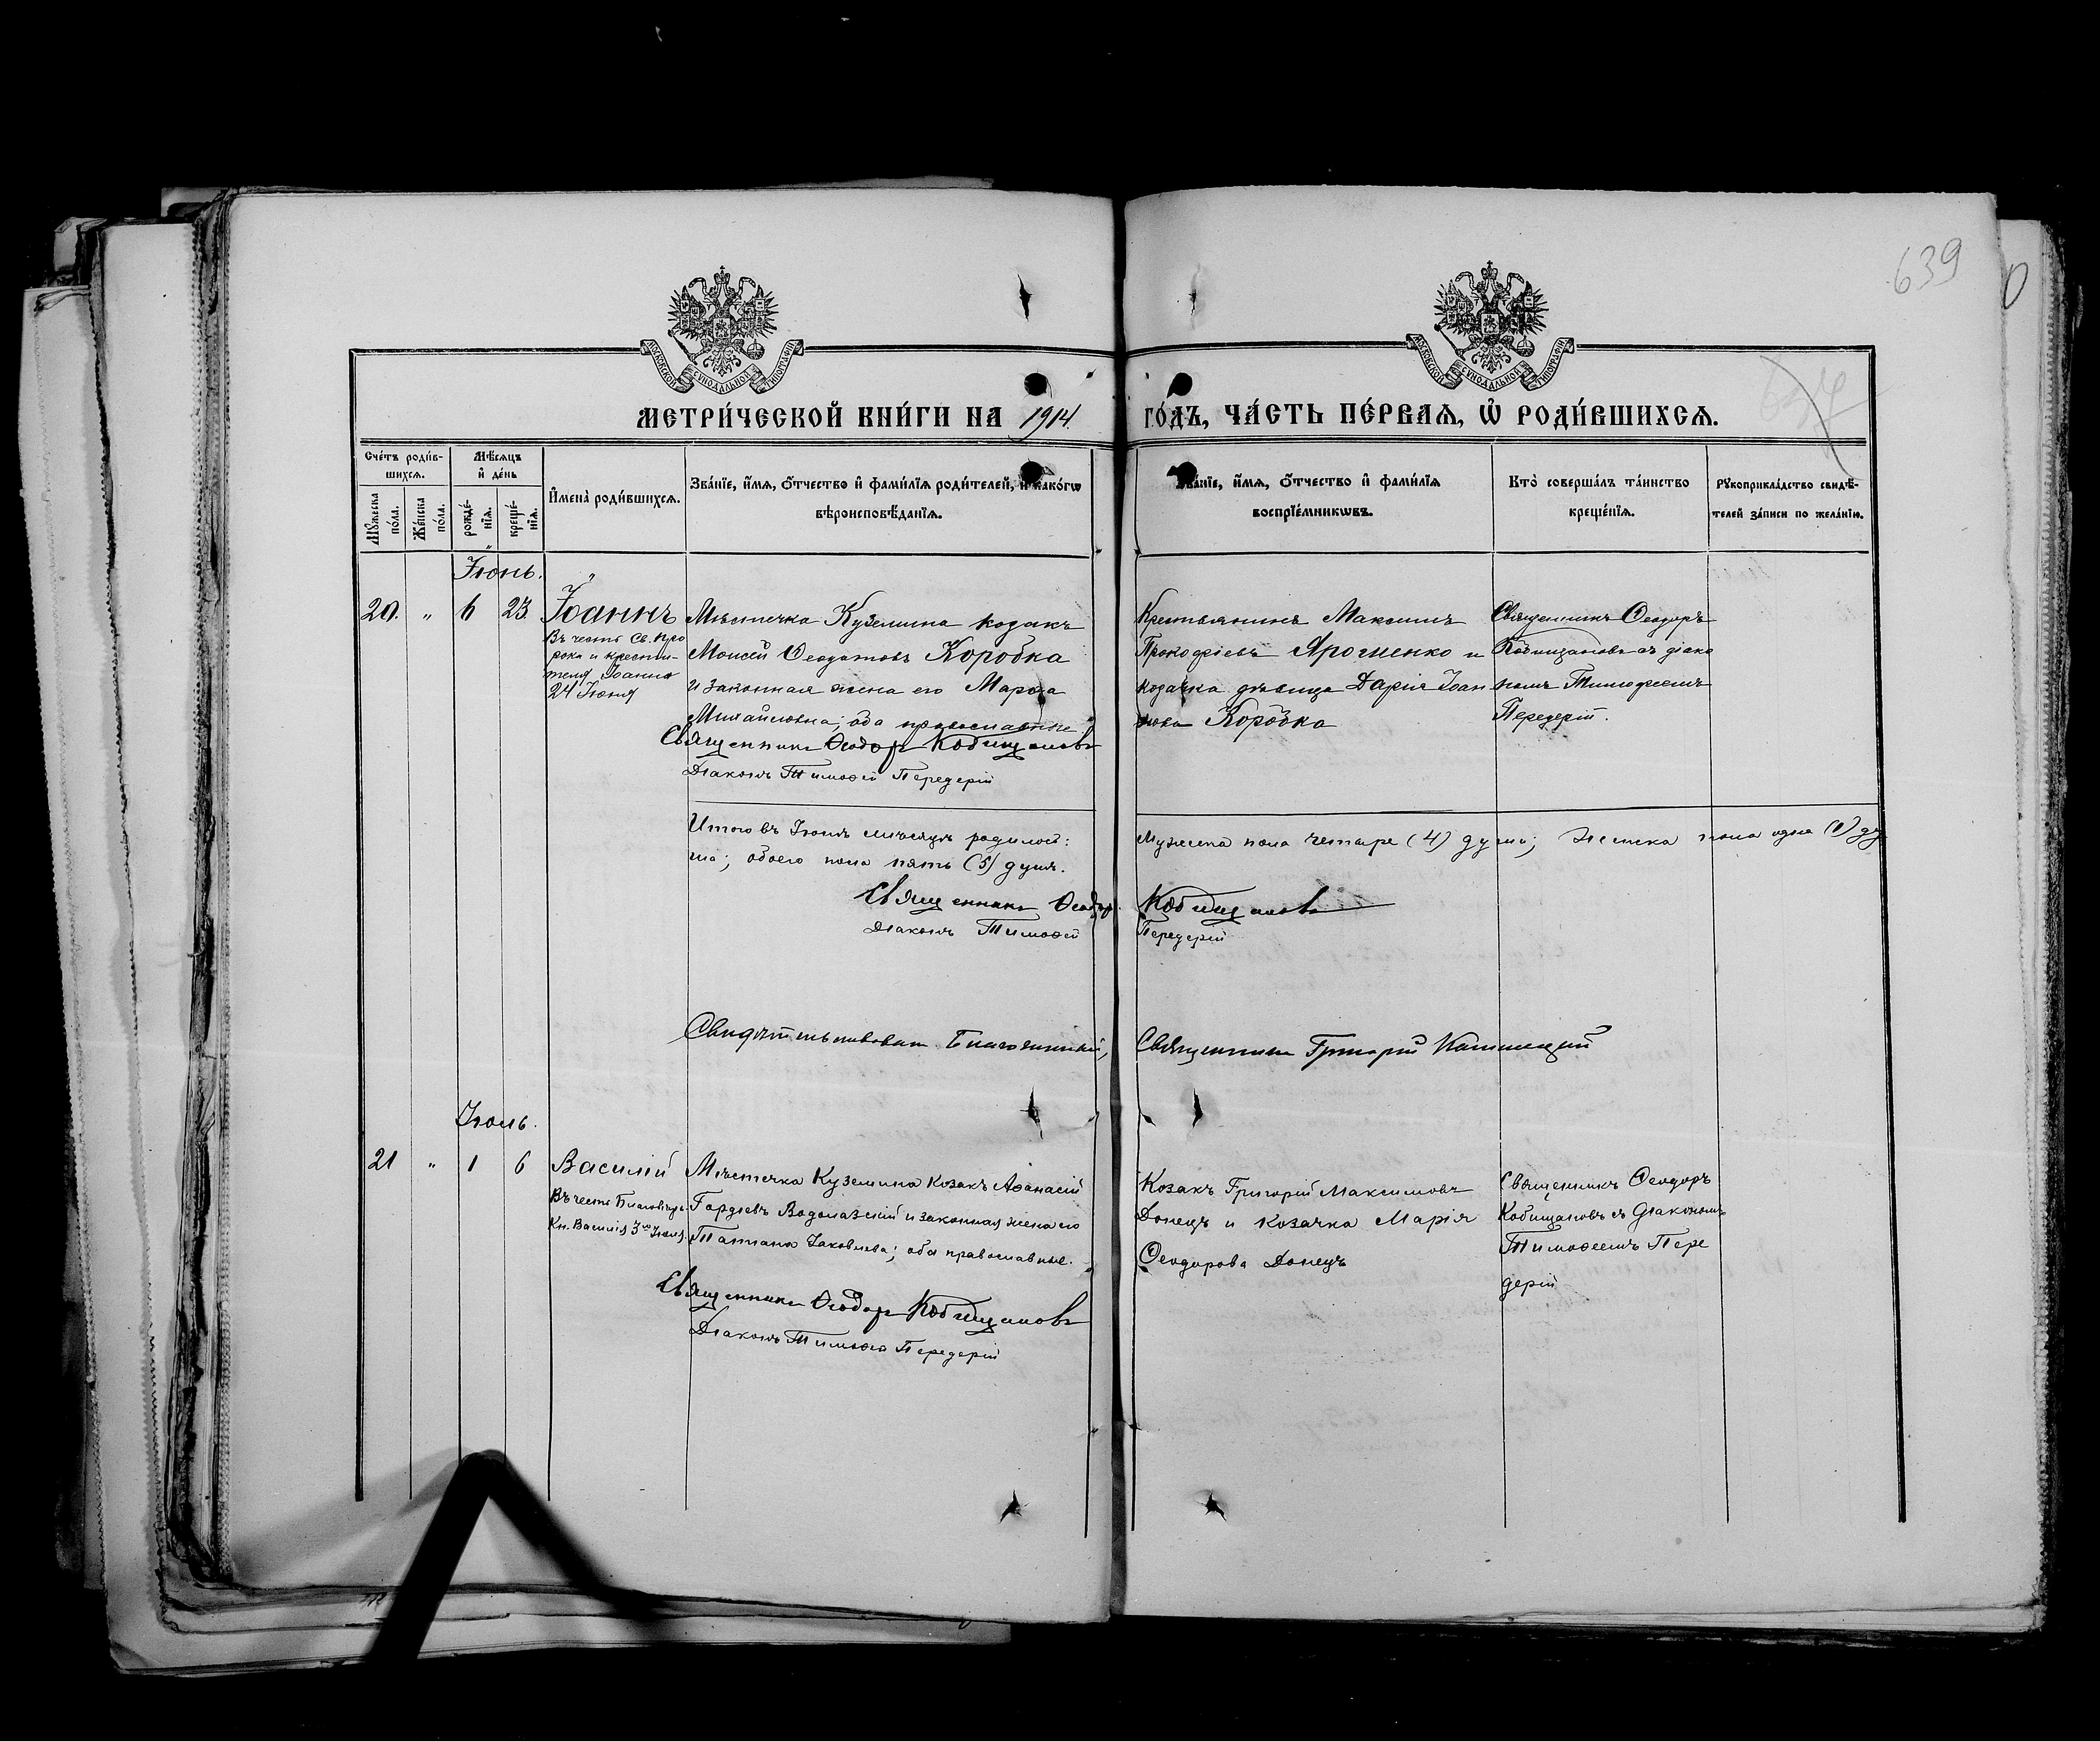 639
МОСКОВСКОЙ СУНОДАЛЬНОЙ ТИПОГРАФІИ
МОСКОВСКОЙ СУНОДАЛЬНОЙ ТИПОГРАФІИ
МЕТРИ́ЧЕСКОЙ КНИ́ГИ НА 1914 ГО́ДЪ, ЧА́СТЬ ПЕ́РВАѦ, Ѽ РОДИ́ВШИХСѦ.
Сче́тъ роди́в-
шихсѧ.
Мꙋжеска по́ла.
Же́нска по́ла.
Мѣ́сѧцъ
и҆ де́нь
рожде́-нїѧ.
креще́-нїѧ.
И҆мена̀ роди́вшихсѧ.
Зва́нїе, и҆́мѧ, ѻ҆́тчество и҆ фами́лїѧ роди́телей, и҆ како́гѡ
вѣроисповѣ́данїѧ.
Зва́нїе, и҆́мѧ, ѻ҆́тчество и҆ фами́лїѧ
воспрїе́мникѡвъ.
Кто̀ соверша́лъ та́инство
креще́нїѧ.
Рꙋкоприкла́дство свидѣ́-
телей за́писи по жела́нїю.
Іюнь.
20. " 6 23. Іоаннъ
Въ честь Св. Про
рока и Крести-
теля Іоанна
24 Іюня
Мѣстечка Куземина козакъ
Моисей Ѳеодотовъ Коробка
и законная жена его Марѳа
Михайловна; оба православные
Священникъ Ѳеодоръ Кобищановъ
Діаконъ Тимоѳей Передерій
Крестьянинъ Максимъ
Прокофіевъ Ярошенко и
козачка дѣвица Дарія Іоан
нова Коробка
Священникъ Ѳеодоръ
Кобищановъ съ діако
номъ Тимофеемъ
Передерій.
Итого въ Іюнѣ мѣсяцѣ родилось: Мужеска пола четыре (4) души; Женска пола одна (1) ду
ша; обоего пола пять (5) душъ.
Священникъ Ѳеодоръ Кобищановъ
Діаконъ Тимоѳей Передерій
Свидѣтельствовалъ Благочинный, Священникъ Григорій
Іюль.
21 " 1 6 Василій
Въ честь Благовѣрн.
Кн. Василія 3го Іюля
Мѣстечка Куземина козакъ Аѳанасій
Гордѣевъ Водолазскій и законная жена его
Татіана Іаковлева; оба православные.
Священникъ Ѳеодоръ Кобищановъ
Діаконъ Тимоѳей Передерій
Козакъ Григорій Максимовъ
Донецъ и козачка Марія
Ѳеодорова Донецъ
Священникъ Ѳеодоръ
Кобищановъ съ Діакономъ
Тимоѳеемъ Пере
дерій